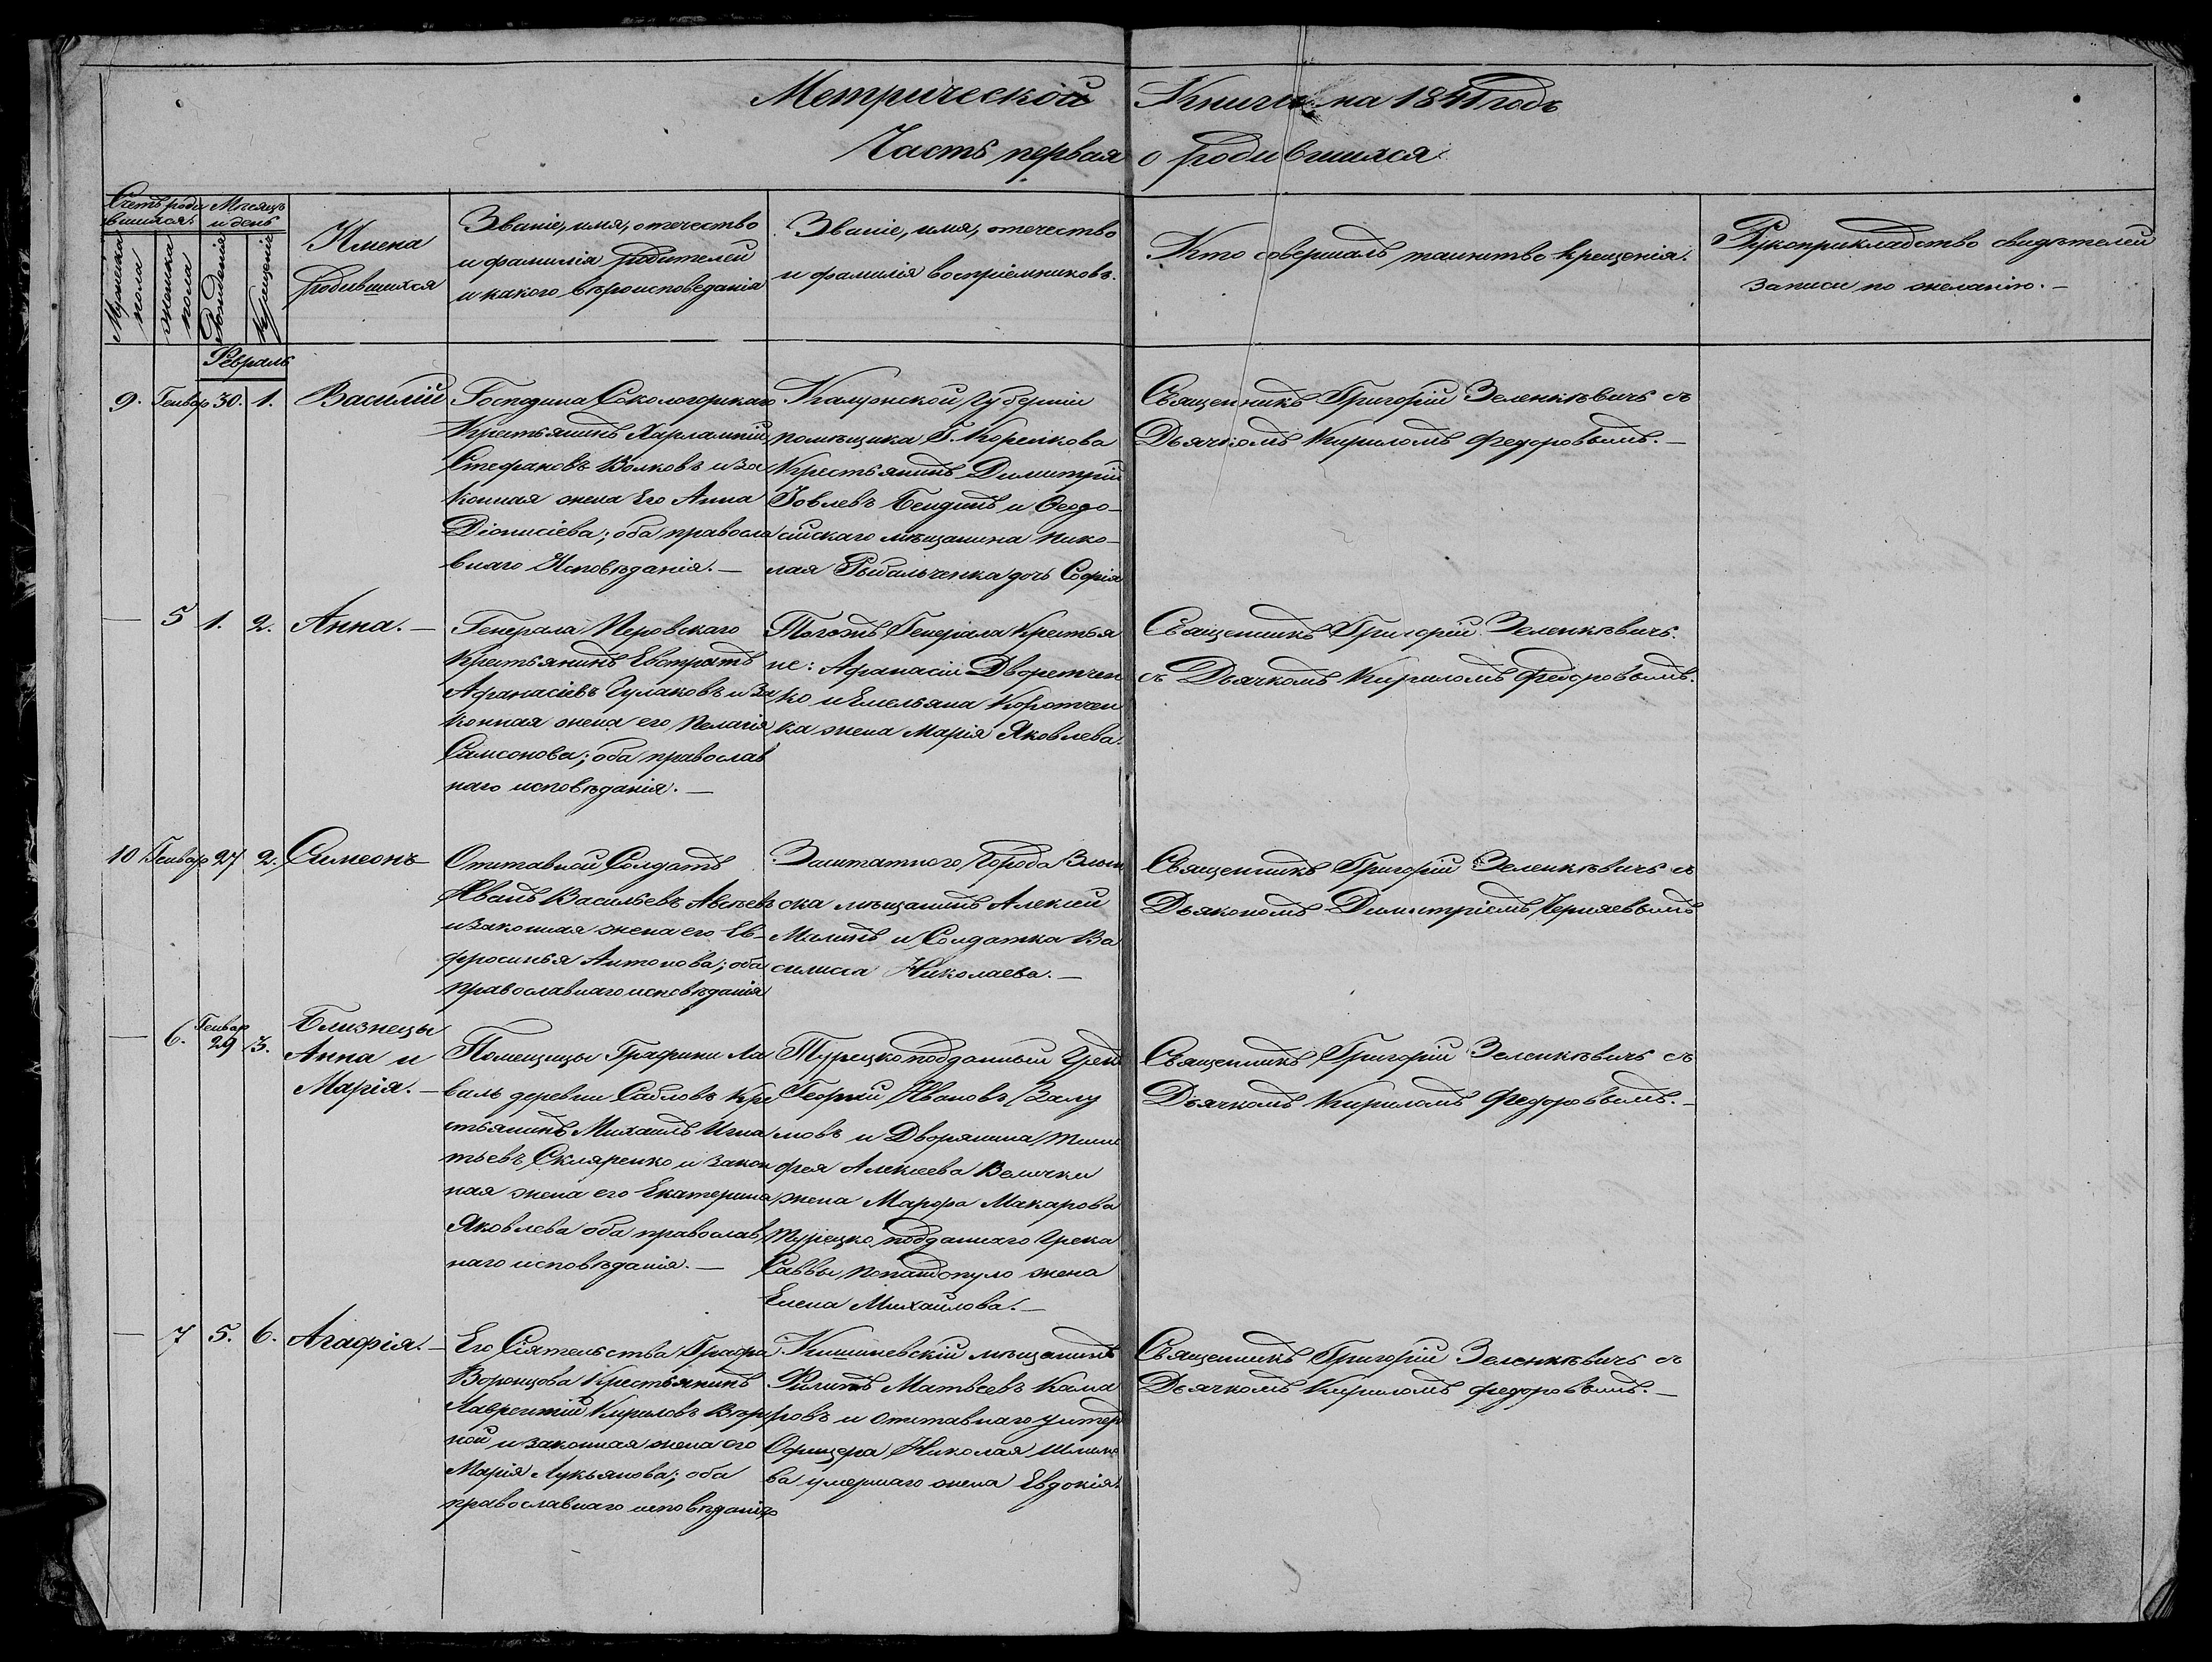 Метрической Книги на 1841 годъ
Часть первая о родившихся
Счетъ роди
вшихся
Мѣсяцъ
и день
Мужеска
пола
женска
пола
Рожденія
Крещенія
Имена
родившихся
Званіе, имя, отечество
и фамилія родителей
и какого вѣроисповеданія
Званіе, имя, отечество
и фамилія воспріемниковъ.
Кто совершалъ таинство крещенія.
Рукоприкладство свидѣтелей
записи по желанію. —
Февраль
9. Генвар 30. 1. Василій
Господина Сокологорскаго
Крестьянинъ Харлампій
Стефановъ Волковъ и за
конная жена Его Анна
Діонисіева; оба правосла
внаго Исповѣданія. —
Калужской Губерніи
помѣщика Г. Корсакова
Крестьянинъ Димитрій
Іовлевъ Бендинъ и Ѳеодо-
сійскаго мѣщанина Нико-
лая Рыбальченка дочь Софія
Священникъ Григорій Зеленкѣвичъ съ
Дьячкомъ Кириломъ Федоровымъ. —
— 5 1. 2. Анна. —
Генерала Перовскаго
Крестьянинъ Евстратъ
Афанасіевъ Гулаковъ и За
конная жена его Пелагія
Самсонова; оба православ
наго исповѣданія. —
Тогожъ Генерала Крестья
не: Афанасій Дворетчен
ко и Емельяна Коротчен
ка жена Марія Яковлева.
Священникъ Григорій Зеленкѣвичъ.
съ Дьячкомъ Кириломъ Федоровымъ.
10 Генвар 27 2. Симеонъ
Отставной Солдатъ
Иванъ Васильевъ Авсѣевъ
и законная жена его Ев-
фросинья Антонова; оба
православнаго исповѣданія
Заштатного Города
ска мѣщанинъ Алексѣй
Малинъ и Солдатка Ва
силиса Николаева. —
Священникъ Григорій Зеленкѣвичъ съ
Дьякономъ Димитріемъ Черняевымъ
— 6. Генвар
29 3. Близнецы
Анна и
Марія. —
Помещицы Графини Ла
валь деревни Сабловъ Кре
стьянинъ Михаилъ Игна
тьевъ Скляренко и закон
ная жена его Екатерина
Яковлева оба православ
наго исповѣданія. —
Турецко подданный Грекъ
Георгий Ивановъ Залу
мовъ и Дворянина Тимо
фея Алексеева Велички
жена Марфа Макарова
Турецко подданнаго Грека
Саввы Попандопуло жена
Елена Михаилова. —
Священникъ Григорій Зеленкѣвичъ съ
Дьячкомъ Кириломъ Федоровымъ. —
— 7 5. 6. Агафія. —
Его Сіятельства Графа
Воронцова Крестьянинъ
Лаврентій Кириловъ
ной и законная жена его
Марія Лукьянова; оба
православнаго исповѣданія
Кишиневскій мѣщанинъ
Филипъ Матвеевъ Кома
ровъ и Отставнаго унтеръ
Офицера Николая
ва умершаго жена Евдокія.
Священникъ Григорій Зеленкѣвичъ съ
Дьячкомъ Кириломъ Федоровымъ. —